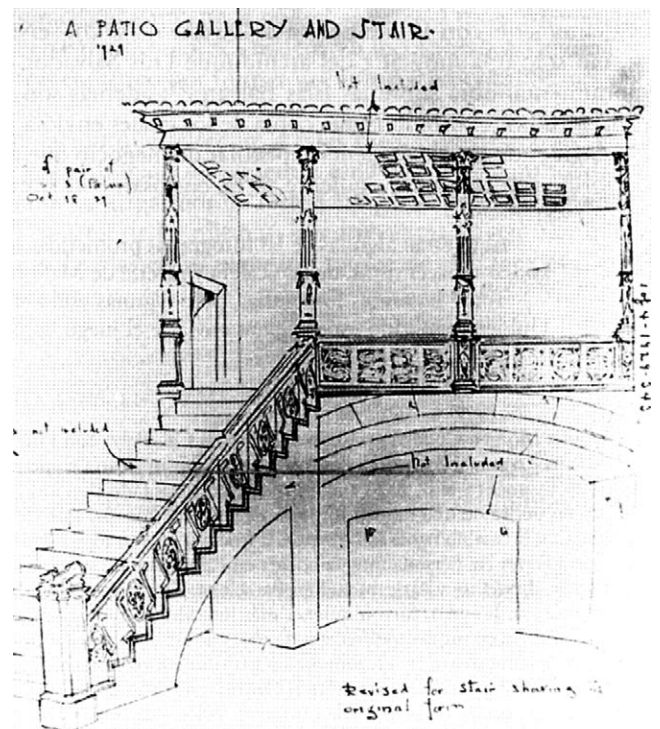 A PATIO GALLERY AND STAIR.
Not Included
pair of
Oct 18 29
not included
Not Included
F
G
Revised for stair showing its
original form